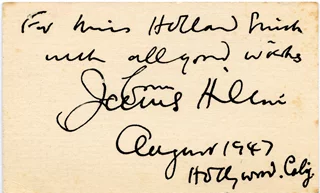 For Miss Holland Smith
with all good wishes
from
James Hilton
August 1947
Hollywood. Calif.